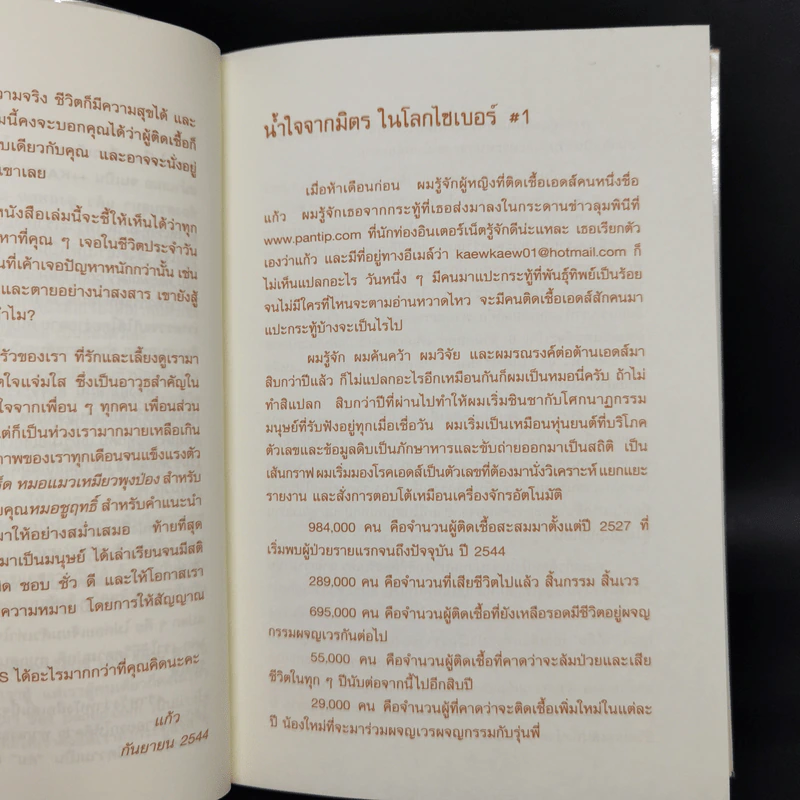 วามจริง ชีวิตก็มีความสุขได้ และ
มนี้คงจะบอกคุณได้ว่าผู้ติดเชื้อก็
บเดียวกับคุณ และอาจจะนั่งอยู่
เขาเลย
นังสือเล่มนี้จะชี้ให้เห็นได้ว่าทุก
หาที่คุณ ๆ เจอในชีวิตประจำวัน
นที่เค้าเจอปัญหาหนักกว่านั้น เช่น
และตายอย่างน่าสงสาร เขายังสู้
ำไม?
รัวของเรา ที่รักและเลี้ยงดูเรามา
ตใจแจ่มใส ซึ่งเป็นอาวุธสำคัญใน
ใจจากเพื่อน ๆ ทุกคน เพื่อนส่วน
ต่ก็เป็นห่วงเรามากมายเหลือเกิน
ภาพของเราทุกเดือนจนแข็งแรงตัว
ร็ด หมอแมวเหมียวพุงป่อง สำหรับ
ยคุณหมอชูฤทธิ์ สำหรับคำแนะนำ
มาให้อย่างสม่ำเสมอ ท้ายที่สุด
มาเป็นมนุษย์ ได้เล่าเรียนจนมีสติ
ผิด ชอบ ชั่ว ดี และให้โอกาสเรา
ความหมาย โดยการให้สัญญาณ
S ได้อะไรมากกว่าที่คุณคิดนะคะ
แก้ว
กันยายน 2544
น้ำใจจากมิตร ในโลกไซเบอร์ #1
เมื่อห้าเดือนก่อน ผมรู้จักผู้หญิงที่ติดเชื้อเอดส์คนหนึ่งชื่อ
แก้ว ผมรู้จักเธอจากกระทู้ที่เธอส่งมาลงในกระดานข่าวลุมพินีที่
www.pantip.com ที่นักท่องอินเตอร์เน็ตรู้จักดีน่ะแหละ เธอเรียกตัว
เองว่าแก้ว และมีที่อยู่ทางอีเมล์ว่า kaewkaew01@hotmail.com ก็
ไม่เห็นแปลกอะไร วันหนึ่ง ๆ มีคนมาแปะกระทู้ที่พันธุ์ทิพย์เป็นร้อย
จนไม่มีใครที่ไหนจะตามอ่านหวาดไหว จะมีคนติดเชื้อเอดส์สักคนมา
แปะกระทู้บ้างจะเป็นไรไป
ผมรู้จัก ผมค้นคว้า ผมวิจัย และผมรณรงค์ต่อต้านเอดส์มา
สิบกว่าปีแล้ว ก็ไม่แปลกอะไรอีกเหมือนกันก็ผมเป็นหมอนี่ครับ ถ้าไม่
ทำสิแปลก สิบกว่าปีที่ผ่านไปทำให้ผมเริ่มชินชากับโศกนาฏกรรม
มนุษย์ที่รับฟังอยู่ทุกเมื่อเชื่อวัน ผมเริ่มเป็นเหมือนหุ่นยนต์ที่บริโภค
ตัวเลขและข้อมูลดิบเป็นภักษาหารและขับถ่ายออกมาเป็นสถิติ เป็น
เส้นกราฟ ผมเริ่มมองโรคเอดส์เป็นตัวเลขที่ต้องมานั่งวิเคราะห์ แยกแยะ
รายงาน และสั่งการตอบโต้เหมือนเครื่องจักรอัตโนมัติ
984,000 คน คือจำนวนผู้ติดเชื้อสะสมมาตั้งแต่ปี 2527 ที่
เริ่มพบผู้ป่วยรายแรกจนถึงปัจจุบัน ปี 2544
289,000 คน คือจำนวนที่เสียชีวิตไปแล้ว สิ้นกรรม สิ้นเวร
695,000 คน คือจำนวนผู้ติดเชื้อที่ยังเหลือรอดมีชีวิตอยู่ผจญ
กรรมผจญเวรกันต่อไป
55,000 คน คือจำนวนผู้ติดเชื้อที่คาดว่าจะล้มป่วยและเสีย
ชีวิตในทุก ๆ ปีนับต่อจากนี้ไปอีกสิบปี
29,000 คน คือจำนวนผู้ที่คาดว่าจะติดเชื้อเพิ่มใหม่ในแต่ละ
ปี น้องใหม่ที่จะมาร่วมผจญเวรผจญกรรมกับรุ่นพี่